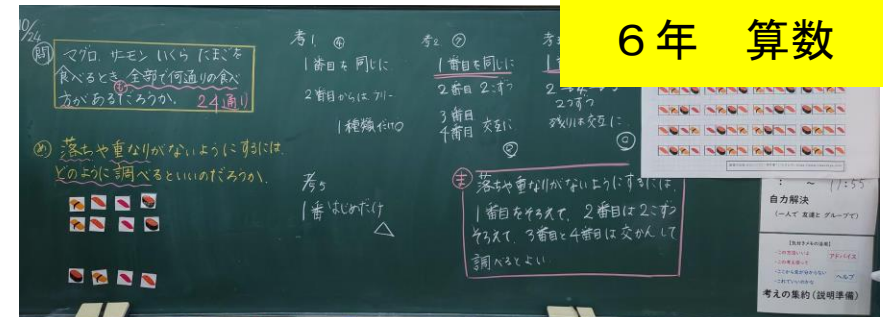 6年 算数
10/24
問
マグロ、サーモン、いくら、たまごを
食べるとき、全部で何通りの食べ
方があるだろうか。 24通り
め 落ちや重なりがないようにするには、
どのように調べるといいのだろうか。
考1
1番目を同じに
2番目からは フリー
1種類だけ○
考2
1番目を同じに
2番目 2こずつ
3番目
4番目 交互に
2つずつ
残りは交互に
考5
1番はじめだけ
△
ま 落ちや重なりがないようにするには、
1番目をそろえて、2番目は2こずつ
そろえて、3番目と4番目は交かんして
調べるとよい。
11:55
自力解決
(一人で 友達と グループで)
アドバイス
ヘルプ
考えの集約(説明準備)